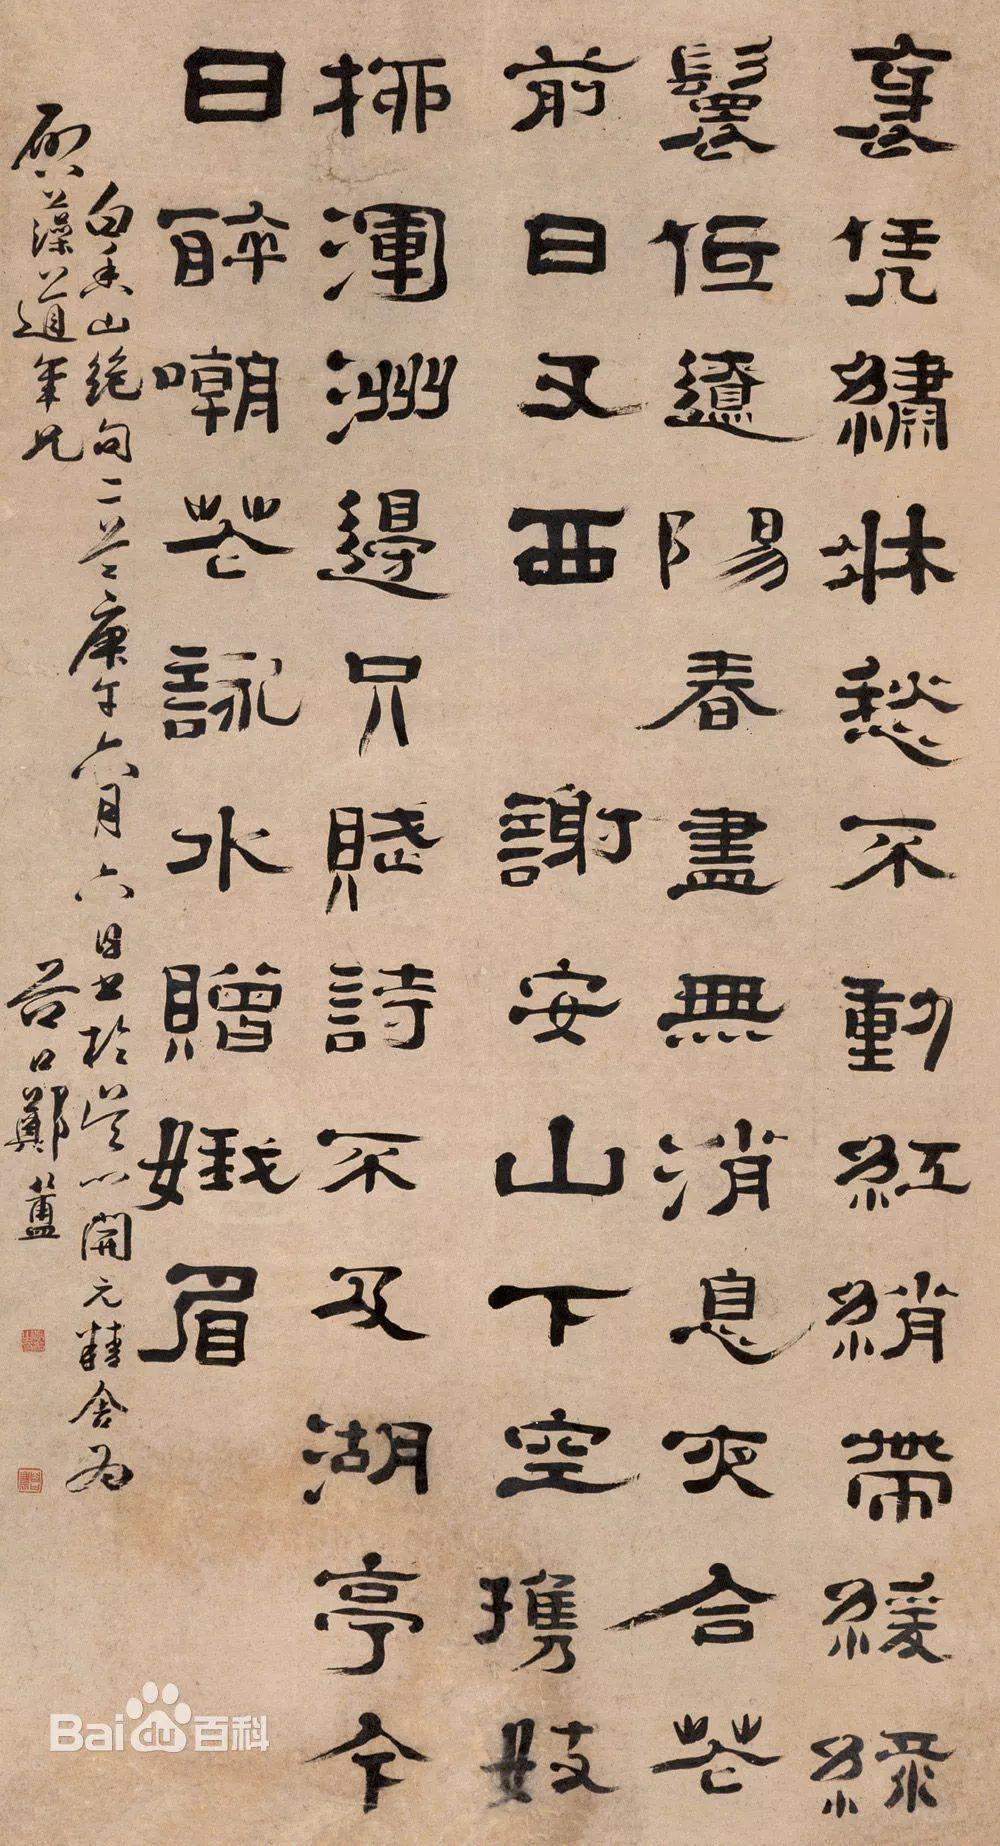 裊凭繡牀愁不動紅綃帶緩綠
鬟低遼陽春盡無消息夜合花
前日又西　謝安山下空攜妓
柳渾洲邊只賦詩不及湖亭今
日醉嘲花詠水贈娥眉
白香山絶句二首庚午六月六日書於吳門開元精舍為
藻道年兄
谷口鄭簠
Baidu百科